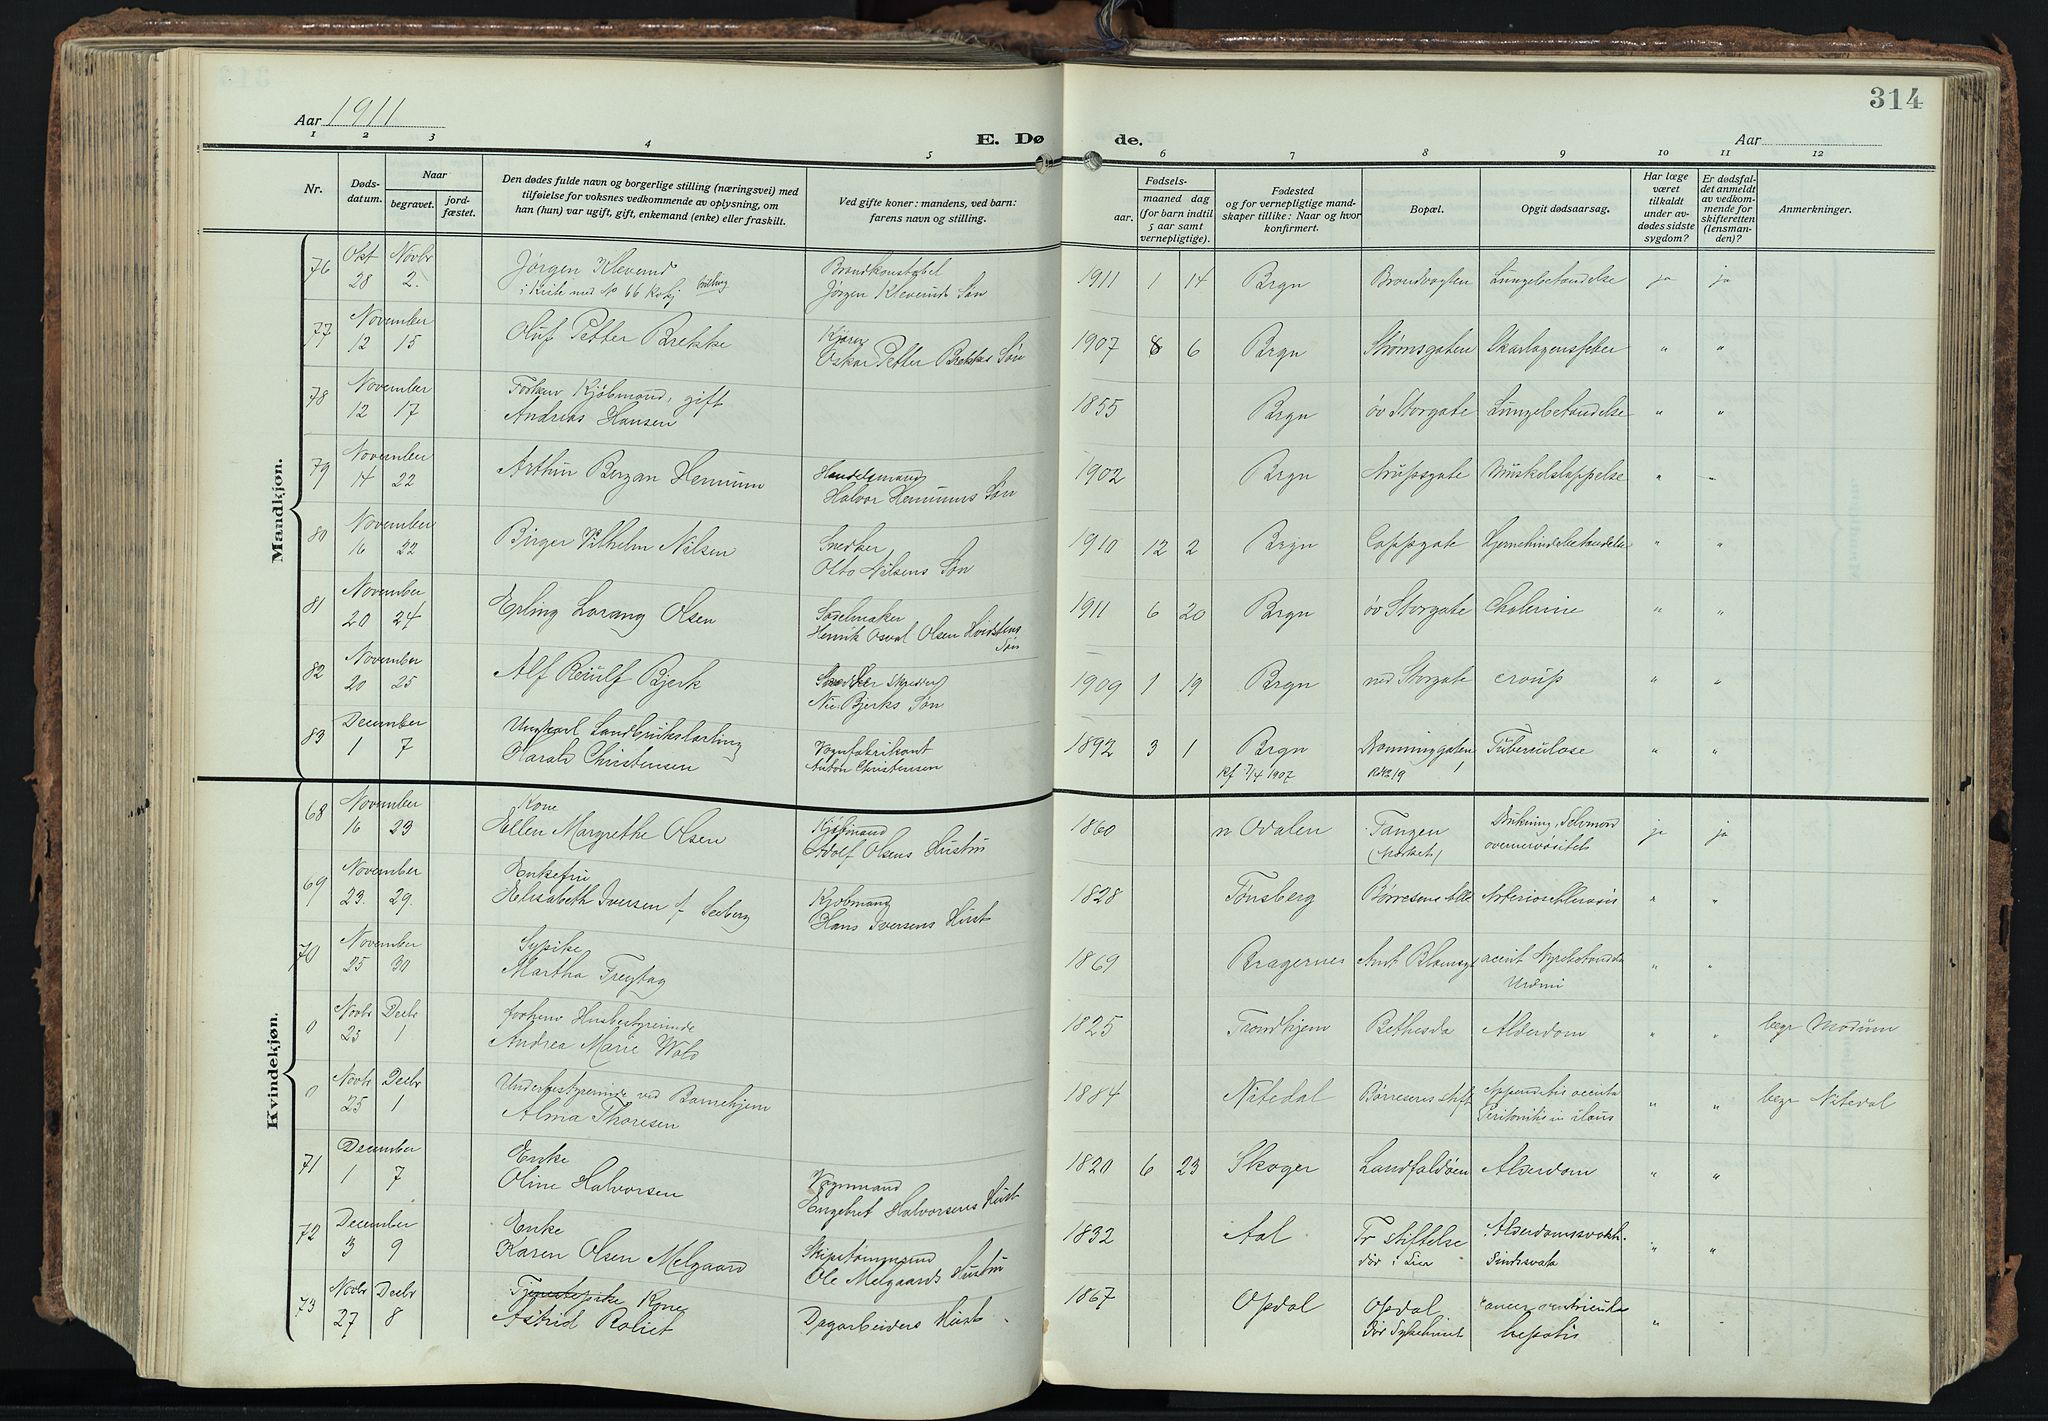 314
Aar 1911
E. Dø de.
Aar
1 2 3 4 5 6 7 8 9 10 11 12
Nr.
Døds-
datum.
Naar
begravet.
jord-
fæstet.
Den dødes fulde navn og borgerlige stilling (næringsvei) med
tilføielse for voksnes vedkommende av oplysning, om
han (hun) var ugift, gift, enkemand (enke) eller fraskilt.
Ved gifte koner: mandens, ved barn:
farens navn og stilling.
Fødsels-
aar. maaned dag
(for barn indtil
5 aar samt
vernepligtige).
Fødested
og for vernepligtige mand-
skaper tillike: Naar og hvor
konfirmert.
Bopæl.
Opgit dødsaarsag.
Har læge
været
tilkaldt
under av-
dødes sidste
sygdom?
Er dødsfal-
det anmeldt
av vedkom-
mende for
skifteretten
(lensman-
den)?
Anmerkninger.
Mandkjøn.
76 Okt 28 Novbr 2. Jørgen Kleverud Brandkonstabel 1911 1 14 Brgn Brandvagten Lungebetændelse ja ja
i Kiste med No 66 Jørgen Kleveruds Søn
77 November 12 15 Oluf Petter Brekke Kjører 1907 8 6 Brgn Strømsgaten Skarlagensfeber " "
Oskar Petter Brekkes Søn
78 November 12 17 Forhenv Kjøbmand, gift 1855 Brgn øv Storgate Lungebetændelse " "
Andreas Hansen
79 November 14 22 Arthur Bergan Hemum Handelsmand 1902 Brgn Arupsgate Muskelslappelse " "
Halvor Hemums Søn
80 November 16 22 Birger Vilhelm Nilsen Snedker 1910 12 2 Brgn Cappsgate Hjernehindebetændelse " "
Otto Nilsens Søn
81 November 20 24 Erling Lorang Olsen Sadelmaker 1911 6 20 Brgn øv Storgate Cholerine " "
Henrik Osval Olsen Hvidstens
Søn
82 November 20 25 Alf Reiulf Bjerk Skrædder 1909 1 19 Brgn ned Storgate croup " "
Bjerks Søn
83 December 1 7 Ungkarl Landbrukslærling Vognfabrikant 1892 3 1 Brgn Dronninggaten Tuberculose " "
Harald Christensen Anton Christensen 1907
Kvindekjøn.
68 November 16 23 Kone Kjøbmand 1860 n Odalen Tangen Drukning, Selvmord ja ja
Ellen Margrethe Olsen Adolf Olsens Hustru overnervøsitet
69 November 23. 29. Enkefru Kjøbmand 1828 Tønsberg Børresens Alle Arteriosklerosis " "
Elisabeth Iversen f. Seeberg Hans Iversens Hust
70 November 25 30 Sypike 1869 Bragernes Amt. Blomsgt accut Nyrebetændelse " "
Martha Freytag Urämi
0 Novbr 25 Decbr 1 forhenv Husbestyrerinde 1825 Trondhjem Bethesda Alderdom " " begr Modum
Andrea Marie Wold
0 Novbr 25 Decbr 1 Underbestyrerinde ved Barnehjem 1884 Nitedal Børresens stift Appendicitis accuta " " begr Nitedal
Alma Thoresen Peritonitis
71 December 1 7 Enke Vognmand 1820 6 23 Skoger Landfaldøen Alderdom " "
Oline Halvorsen Engebret Halvorsens Hust
72 December 3 9 Enke Skipstømmermand 1832 Aal Tr stiftelse Alderdomssvakh. " "
Karen Olsen Melgaard Ole Melgaards Hustru død i Lier Sindssvak
73 Novbr 27 Decbr 8 Tjenestepike Kone Dagarbeiders Hust 1867 Opdal Opdal cancer ventriculi "
Astrid Roliet død Sykehuset hepatis